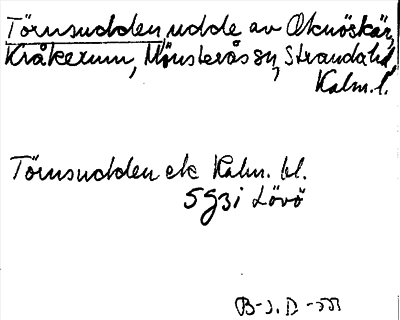 Törnsudden, udde av Oknöskär,
Kråkerum, Mönsterås sn, Stranda hd,
Kalm. l.
Törnsudden ek Kalm. bl.
5G3i Lövö
B-J. D. -53